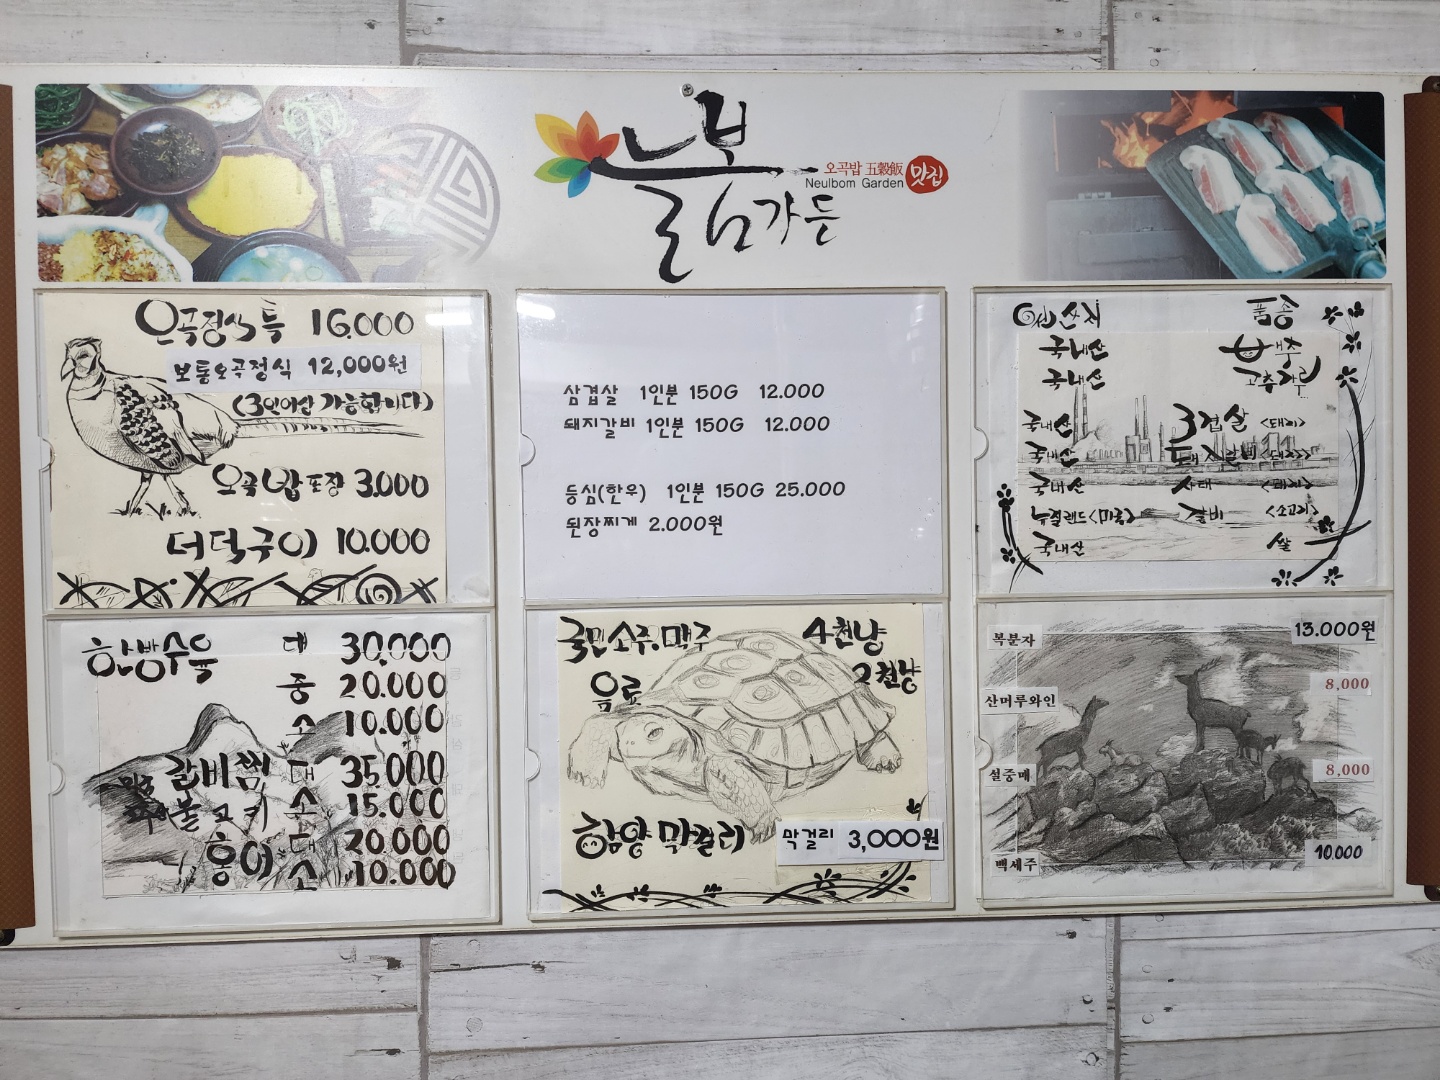 늘봄가든
오곡밥 五穀飯 맛집
Neulbom Garden
오곡정식 특 16,000
보통오곡정식 12,000원
(3인이상 가능합니다)
오곡밥 포장 3,000
더덕구이 10,000
삼겹살 1인분 150G 12.000
돼지갈비 1인분 150G 12.000
등심(한우) 1인분 150G 25.000
된장찌게 2.000원
원산지 품송
국내산 배추
국내산 고추가루
국내산 3겹살 <돼지>
국내산 돼지갈비 <돼지>
국내산 사태 <돼지>
뉴질랜드<미국> 갈비 <소고기>
국내산 쌀
한방수육 대 30,000
중 20,000
소 10,000
갈비찜 대 35,000
불고기 소 15.000
홍어 대 20,000
소 10.000
국민소주.맥주 4천냥
음료 2천냥
함양 막걸리 막걸리 3,000원
복분자 13.000원
산머루와인 8,000
설중매 8,000
백세주 10,000